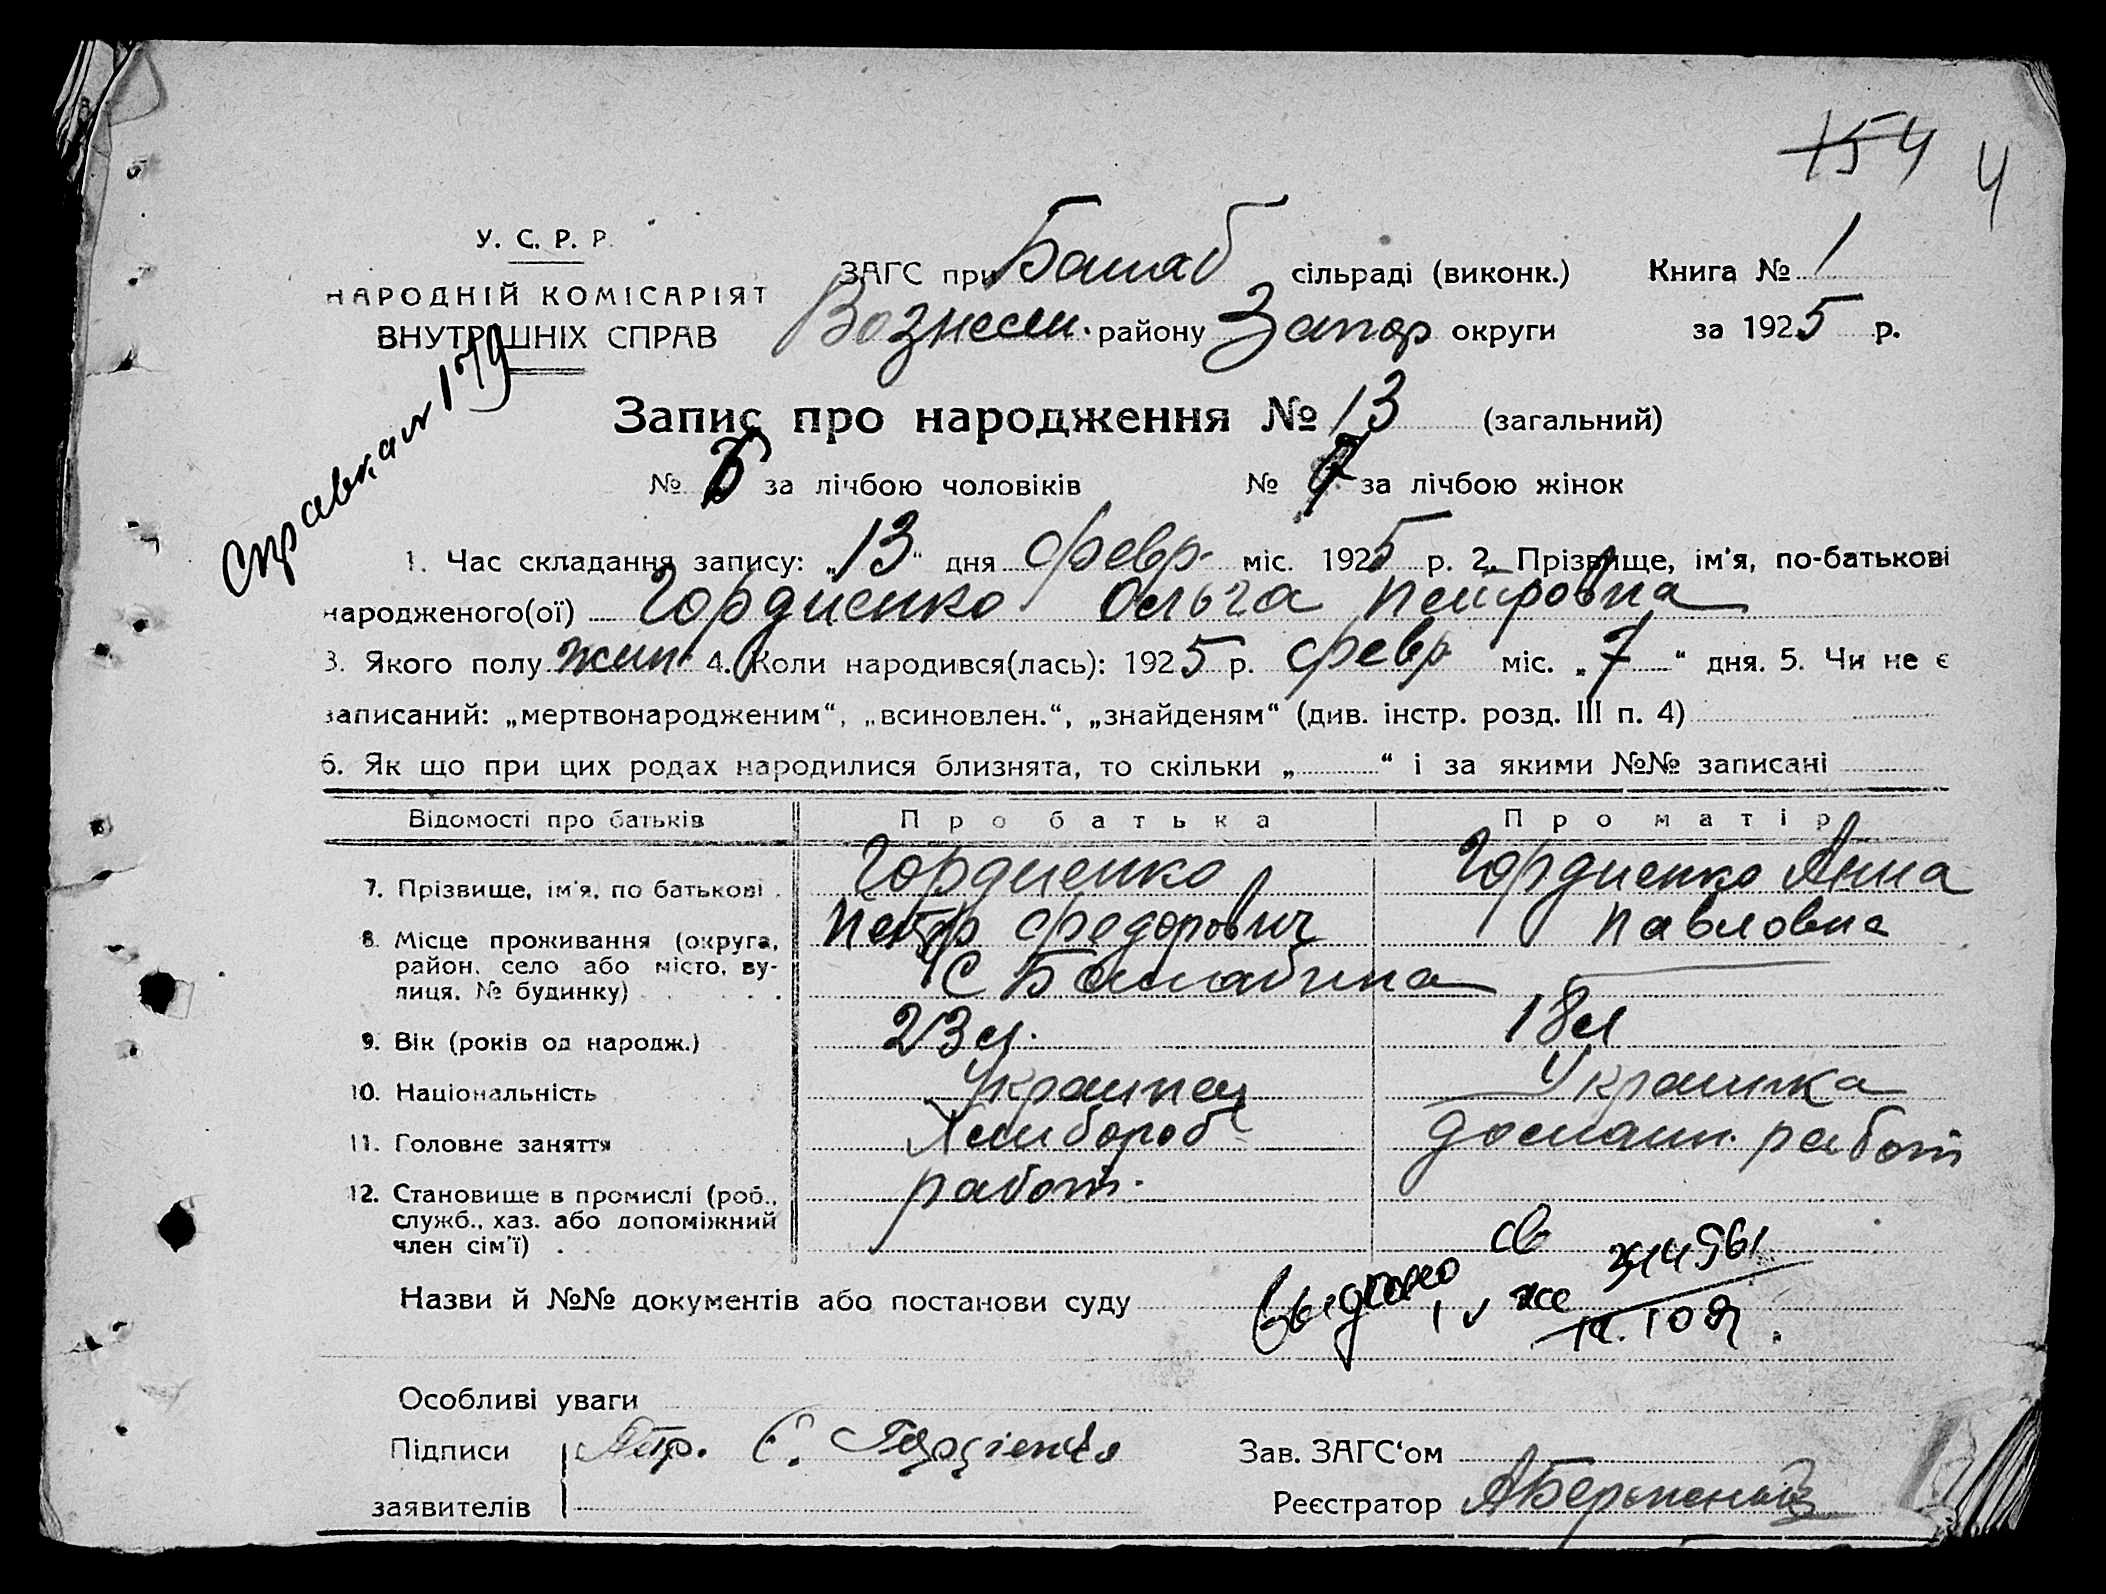 154 4
У. С. Р. Р.
НАРОДНІЙ КОМІСАРІЯТ
ВНУТРІШНІХ СПРАВ
ЗАГС при Балаб сільраді (виконк.) Книга № 1
Вознесен. району Запор округи за 1925 р.
Справка 179
Запис про народження № 13 (загальний)
№ за лічбою чоловіків № 7 за лічбою жінок
1. Час складання запису: „13“ дня февр. міс. 1925 р. 2. Прізвище, ім'я, по-батькові
народженого(ої) Гордиенко Ольга Петровна
3. Якого полу жен. 4. Коли народився(лась): 1925 р. февр міс. „7“ дня. 5. Чи не є
записаний: „мертвонародженим“, „всиновлен.“, „знайденям“ (див. інстр. розд. III п. 4)
6. Як що при цих родах народилися близнята, то скільки „ “ і за якими №№ записані
Відомості про батьків Про батька Про матір
7. Прізвище, ім'я, по батькові . Гордиенко Гордиенко Анна
Петр Федорович Павловна
8. Місце проживання (округа, район, село або місто, вулиця, № будинку) С Балабина
9. Вік (років од народж.) 23 л. 18 л
10. Національність Украинец Украинка
11. Головне заняття Хлибороб домашн. работ
12. Становище в промислі (роб., служб., хаз. або допоміжний член сім'ї) . работ.
Назви й №№ документів або постанови суду Выдано св
Особливі уваги
Підписи Петр. Є. Гордієнко Зав. ЗАГС'ом
заявителів Реєстратор